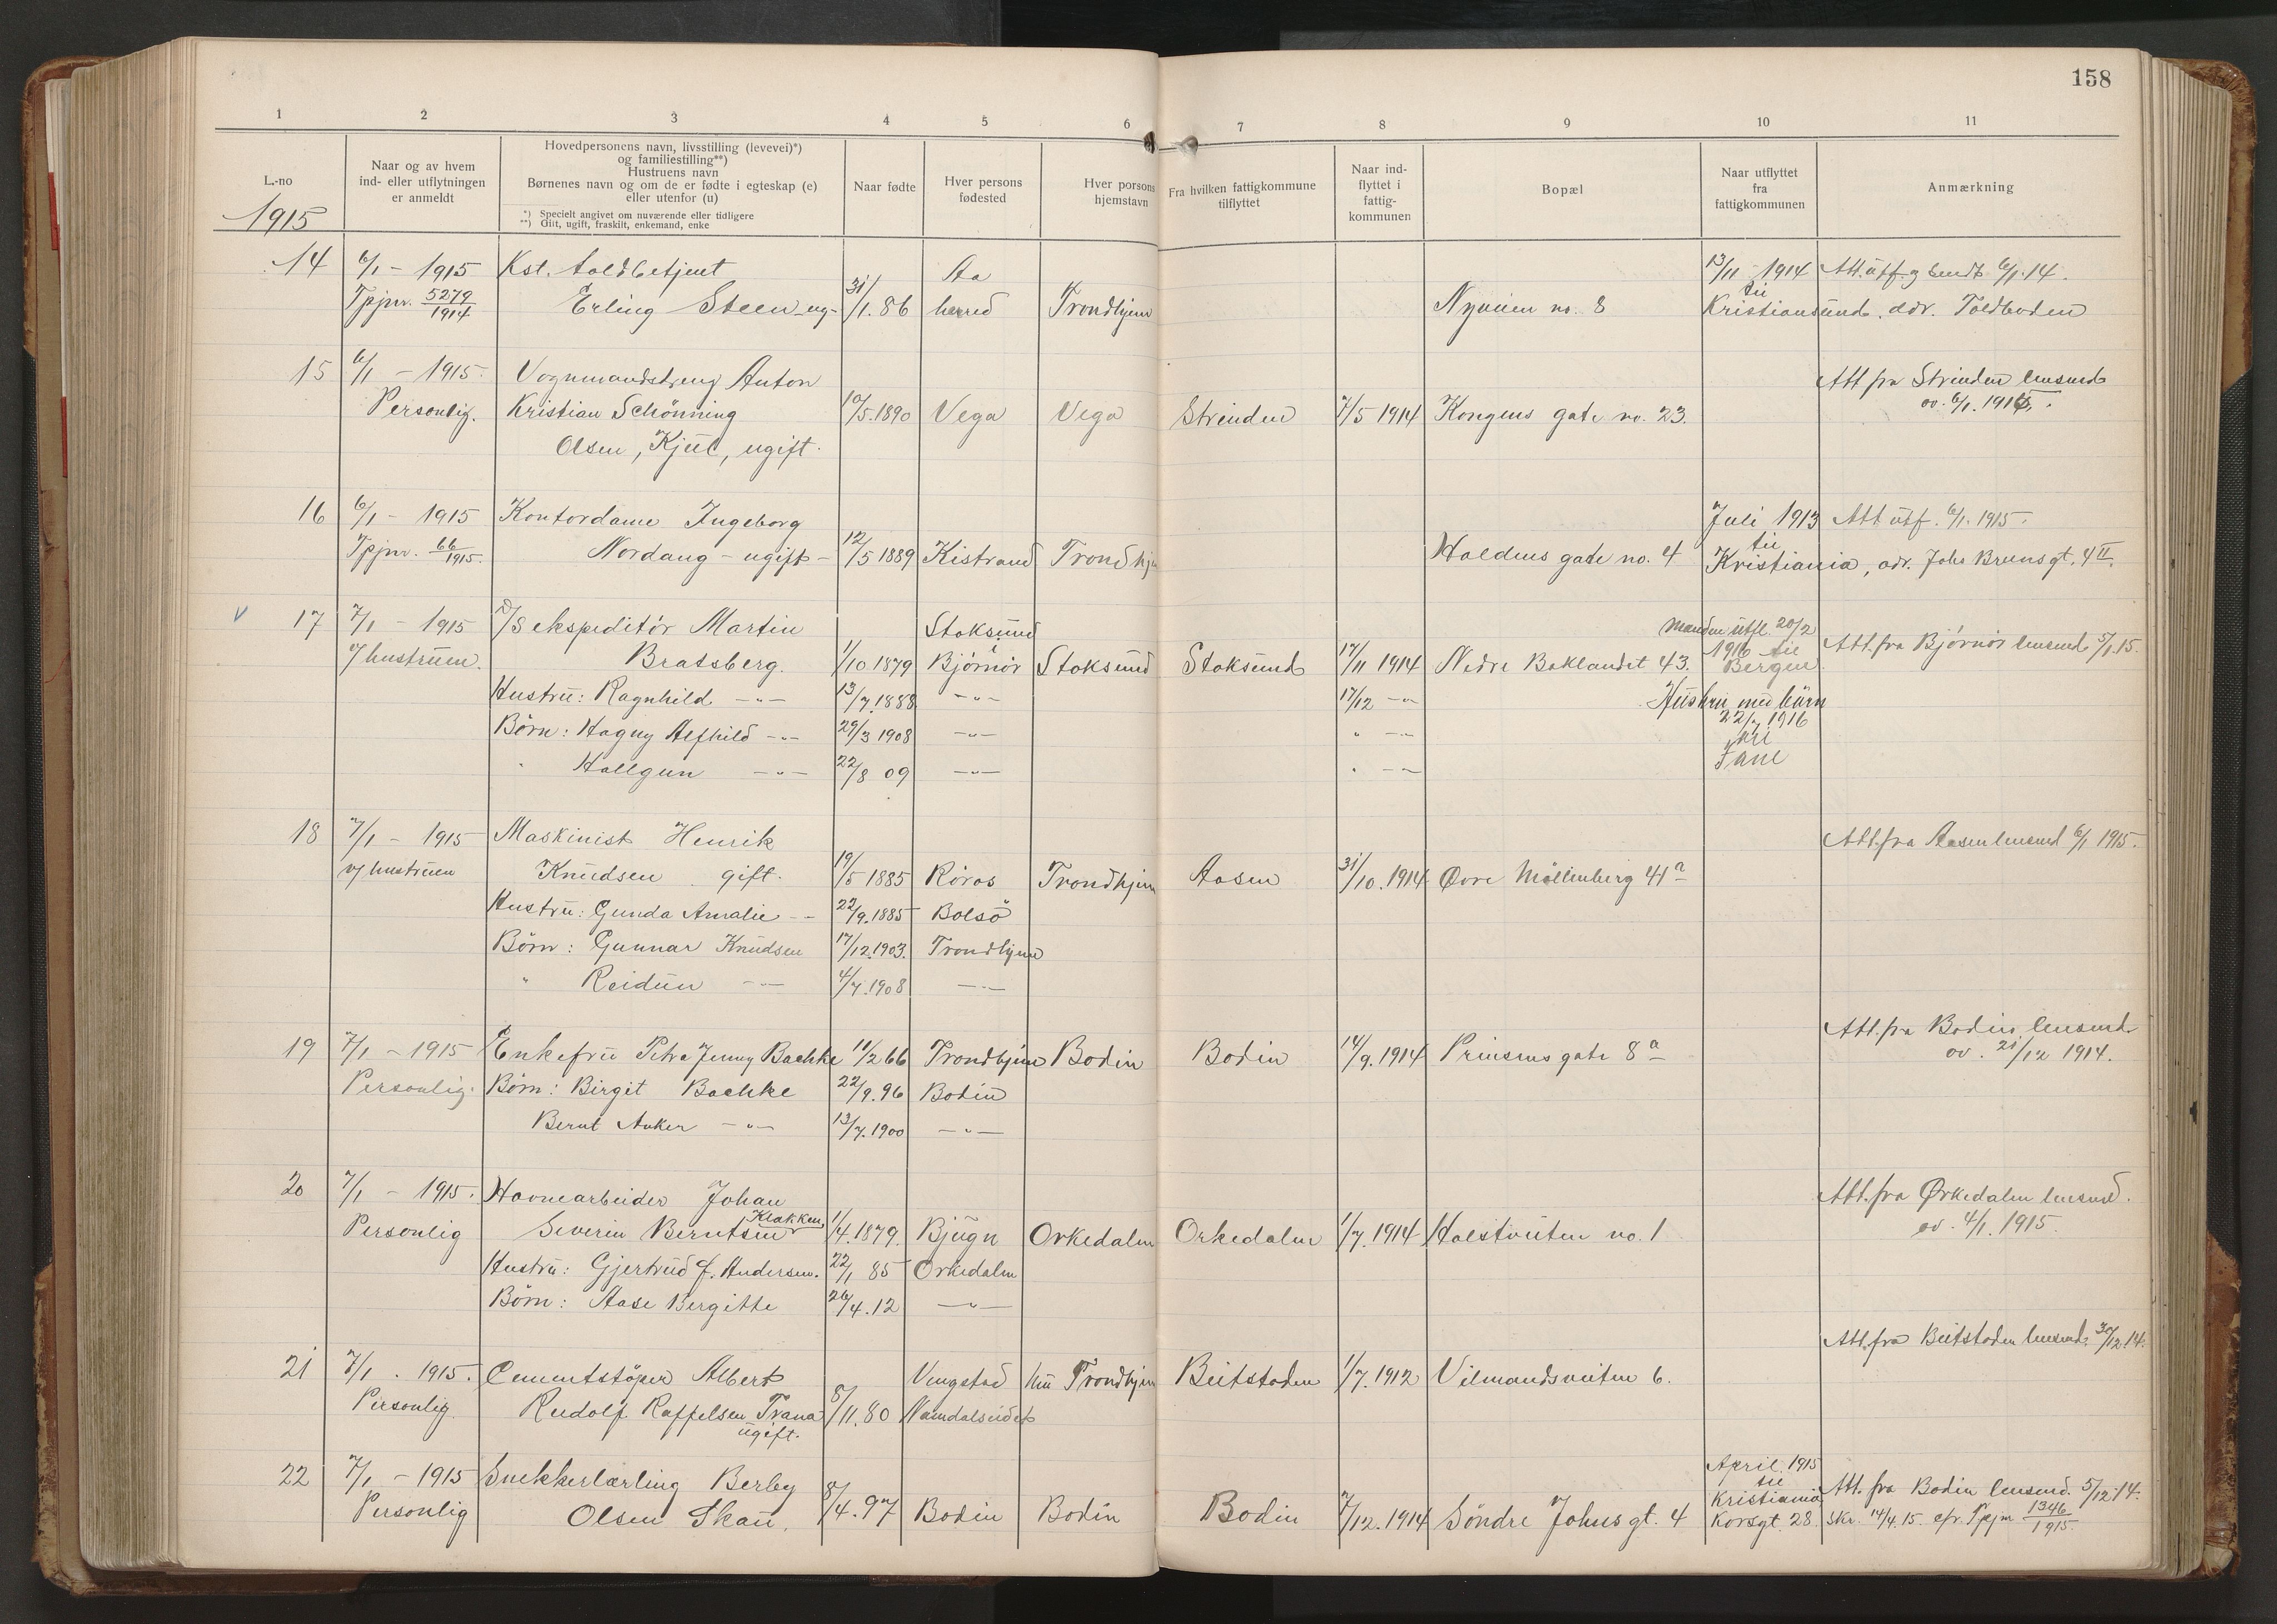 158
1 2 3 4 5 6 7 8 9 10 11
L.-no
1915
Naar og av hvem
ind- eller utflytningen
er anmeldt
Hovedpersonens navn, livsstilling (levevei)*)
og familiestilling**)
Hustruens navn
Børnenes navn og om de er fødte i egteskap (e)
eller utenfor (u)
*) Specielt angivet om nuværende eller tidligere
**) Gift, ugift, fraskilt, enkemand, enke
Naar fødte
Hver persons
fødested
Hver persons
hjemstavn
Fra hvilken fattigkommune
tilflyttet
Naar ind-
flyttet i
fattig-
kommunen
Bopæl
Naar utflyttet
fra
fattigkommunen
Anmærkning
14 6/1 - 1915 Kst. toldbetjent Aa 13/11 1914 Att. utf. og sendt 6/1.14.
Tpjnr. 5279/1914 Erling Steen - ug- 31/1.86 herred Trondhjem Nyveien no. 8 til Kristiansund. adr. Toldboden
15 6/1 - 1915. Vognmandsdreng Anton Att fra Strinden lensmd
Personlig. Kristian Schönning 10/5.1890 Vega Vega Strinden 7/5 1914 Kongens gate no. 23. av. 6/1. 1915.
Olsen, Kjul, ugift.
16 6/1 - 1915 Kontordame Ingeborg Juli 1913 Att utf. 6/1. 1915.
Tpjnr. 66/1915. Nordang - ugift - 12/5 1889 Kistrand Trondhjem Haldens gate no. 4 til Kristiania, adr. Johs Brunsgt. 4 II.
17 7/1 - 1915 D/S ekspeditör Martin Stoksund Manden utfl. 20/2
v/ hustruen. Bratsberg. 1/10 1879 Bjørnör Stoksund Stoksund 17/11 1914 Nedre Baklandet 43. 1916 til Bergen. Att. fra Bjørnör lensmd 5/1.15.
Hustru: Ragnhild -"- 13/7.1888 -"- 17/12 -"- Hustru med börn
Börn: Hagny Alfhild -"- 29/3 1908 -"- " -"- 22/7 1916
" Hallgun -"- 22/8 09 -"- " -"- til Fane
18 7/1 - 1915 Maskinist Henrik Att. fra Aasen lensmd 6/1 1915.
v/ hustruen Knudsen gift. 19/5 1885 Röros Trondhjem Aasen 31/10.1914 Øvre Möllenberg 41 a
Hustru: Gunda Amalie -"- 22/9.1885 Bolsö
Börn: Gunnar Knudsen 17/12.1903. Trondhjem
" Reidun -"- 4/7.1908 -"-
19 7/1 - 1915 Enkefru Petra Jenny Bachke 11/2 66 Trondhjem Bodin Bodin 14/9.1914 Prinsens gate 8 a Att. fra Bodin lensmd
Personlig. Börn: Birgit Bachke 22/9.96 Bodin av. 21/12 1914.
Bernt Anker -"- 13/7.1900 -"-
20 7/1 - 1915. Havnearbeider Johan Att. fra Ørkedalen lensmd.
Klakken
Personlig Severin Berntsen 1/4.1879. Bjugn Orkedalen Orkedalen 1/7.1914 Holstveiten no. 1 av. 4/1. 1915.
Hustru: Gjertrud f. Andersen. 22/1 85 Orkedalen
Börn: Aase Bergitte 26/4.12 -"-
21 7/1. 1915. Cementstöper Albert Vengstad Trondhjem Beitstaden 1/7.1912 Vilmandsveiten 6. Att. fra Beitstaden lensmd. 30/12 14.
Personlig Rudolf Raffelsen Trana 8/11.80 Namdalseidet
ugift.
22 7/1 - 1915 Snekkerlærling Berby April 1915
Personlig Olsen Skau. 8/4.97 Bodin Bodin Bodin 7/12.1914 Söndre Johnsgt. 4 til Kristiania Att. fra Bodin lensmd. 5/12 14.
Korsgt. 28. skr. 14/4.15. cfr. Tpjnr 1346/1915.